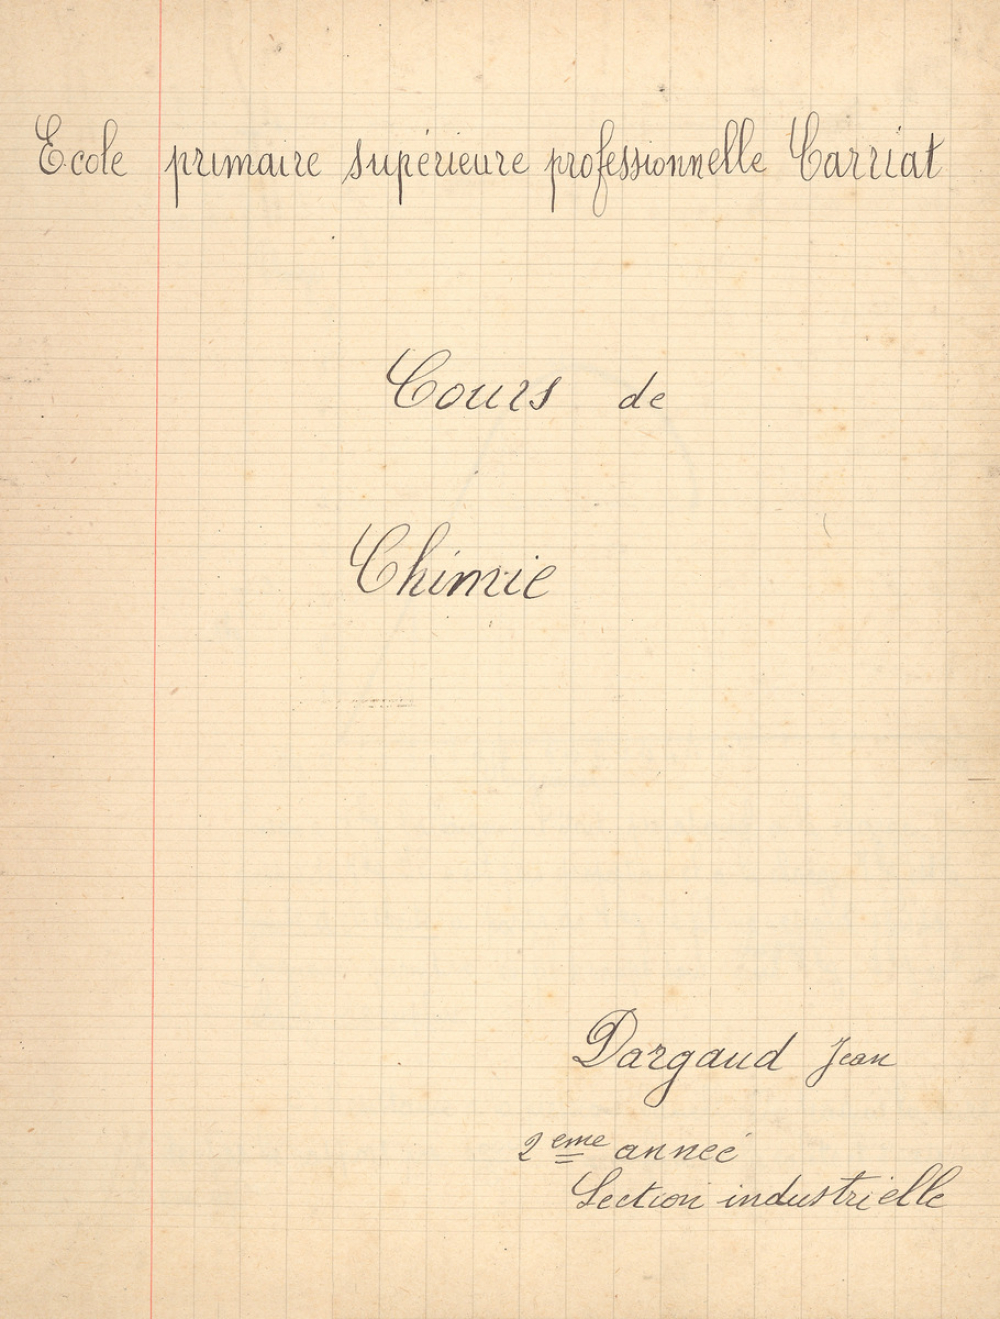 Ecole primaire supérieure professionnelle Carriat
Cours de
Chimie
Dargaud Jean
2eme anneé
Section industrielle